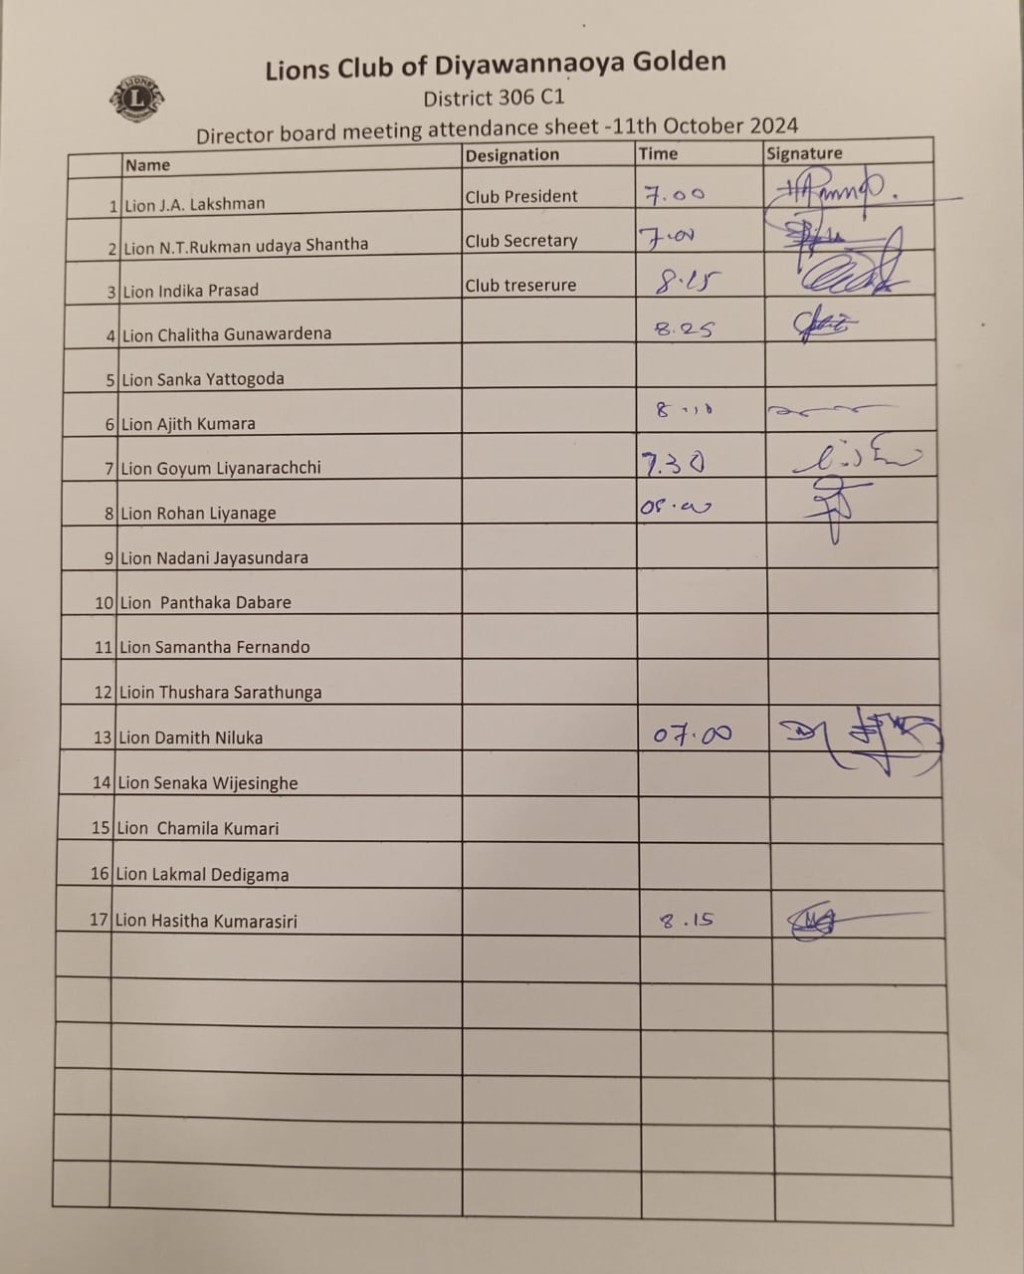 Lions Club of Diyawannaoya Golden
LIONS
L
District 306 C1
Director board meeting attendance sheet -11th October 2024
Name Designation Time Signature
1 Lion J.A. Lakshman Club President 7.00
2 Lion N.T.Rukman udaya Shantha Club Secretary 7.00
3 Lion Indika Prasad Club treserure 8.15
4 Lion Chalitha Gunawardena 8.25
5 Lion Sanka Yattogoda
6 Lion Ajith Kumara 8.10
7 Lion Goyum Liyanarachchi 7.30
8 Lion Rohan Liyanage 08.00
9 Lion Nadani Jayasundara
10 Lion Panthaka Dabare
11 Lion Samantha Fernando
12 Lioin Thushara Sarathunga
13 Lion Damith Niluka 07.00
14 Lion Senaka Wijesinghe
15 Lion Chamila Kumari
16 Lion Lakmal Dedigama
17 Lion Hasitha Kumarasiri 8.15